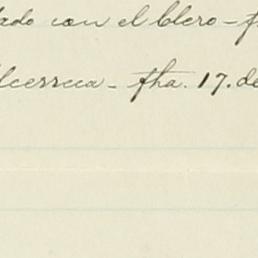 lado con el Clero - fh
lcerreca - fha. 17. de